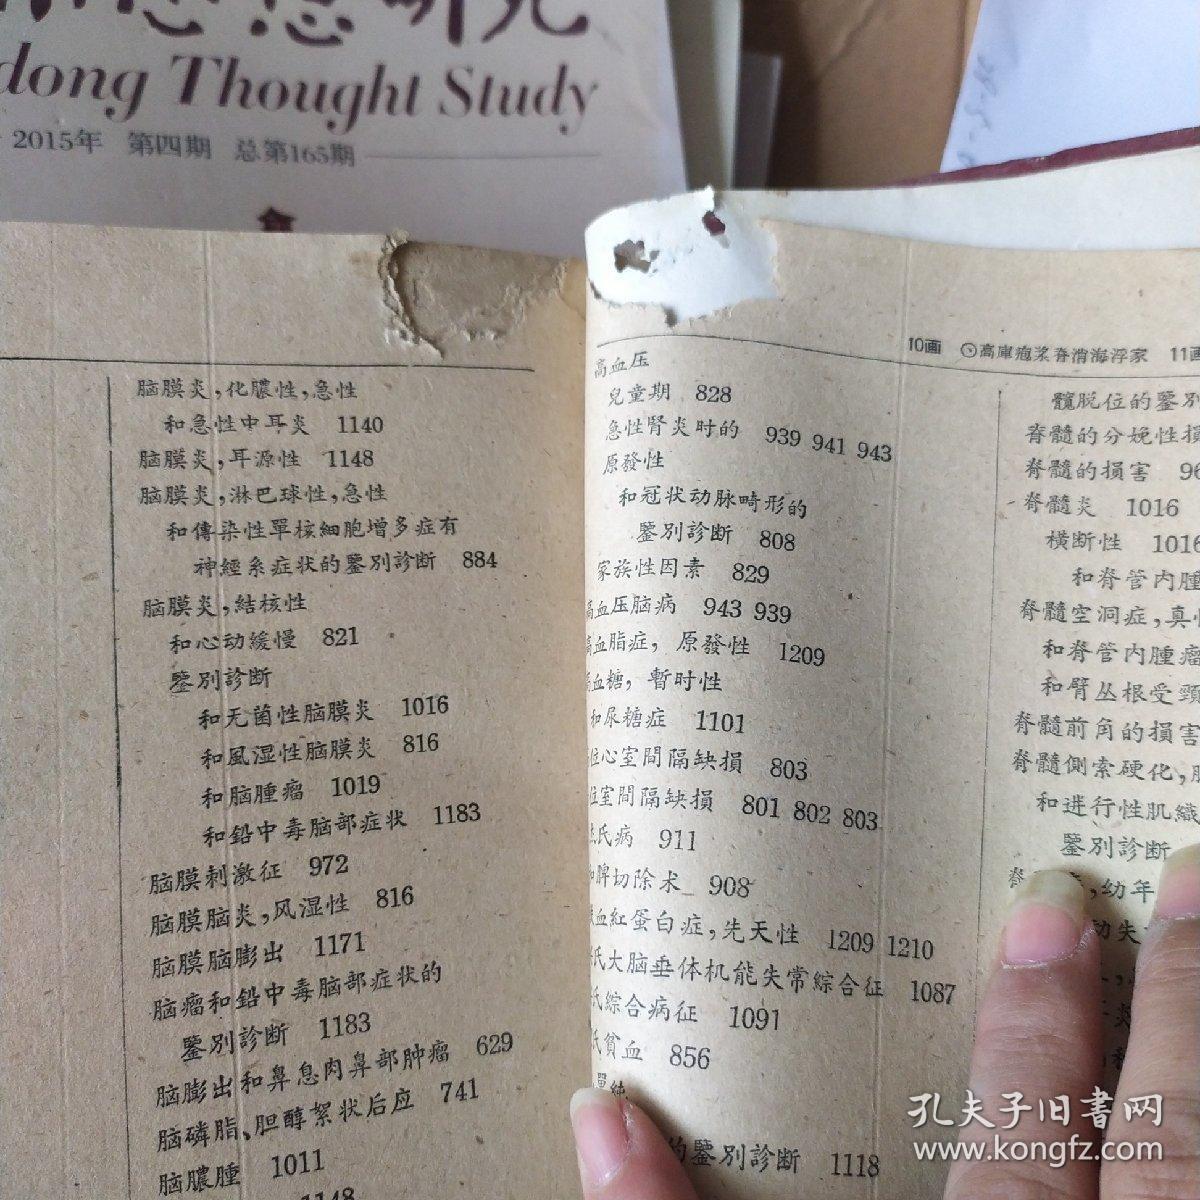 dong Thought Study
2015年 第四期 总第165期
脑膜炎,化膿性,急性
和急性中耳炎 1140
脑膜炎,耳源性 1148
脑膜炎,淋巴球性,急性
和傳染性單核細胞增多症有
神經系症状的鑒別診断 884
脑膜炎,結核性
和心动緩慢 821
鑒別診断
和无菌性脑膜炎 1016
和風湿性脑膜炎 816
和脑腫瘤 1019
和鉛中毒脑部症状 1183
脑膜刺激征 972
脑膜脑炎,风湿性 816
脑膜脑膨出 1171
脑瘤和鉛中毒脑部症状的
鑒別診断 1183
脑膨出和鼻息肉鼻部肿瘤 629
脑磷脂、胆醇絮状后应 741
脑膿腫 1011
1148
10画 高庫疱浆脊消海浮家 11画
高血压
兒童期 828
急性腎炎时的 939 941 943
原發性
和冠状动脉畸形的
鑒別診断 808
家族性因素 829
高血压脑病 943 939
高血脂症,原發性 1209
血糖,暫时性
和尿糖症 1101
位心室間隔缺損 803
位室間隔缺損 801 802 803
氏病 911
和脾切除术 908
血紅蛋白症,先天性 1209 1210
氏大脑垂体机能失常綜合征 1087
氏綜合病征 1091
氏貧血 856
單純
的鑒別診断 1118
髖脱位的鑒別
脊髓的分娩性損
脊髓的損害 96
脊髓炎 1016
横断性 1016
和脊管内腫
脊髓空洞症,真性
和脊管内腫瘤
和臂丛根受
脊髓前角的損害
脊髓側索硬化,
和进行性肌
鑒別診断
,幼年
动失
孔夫子旧書网
www.kongfz.com